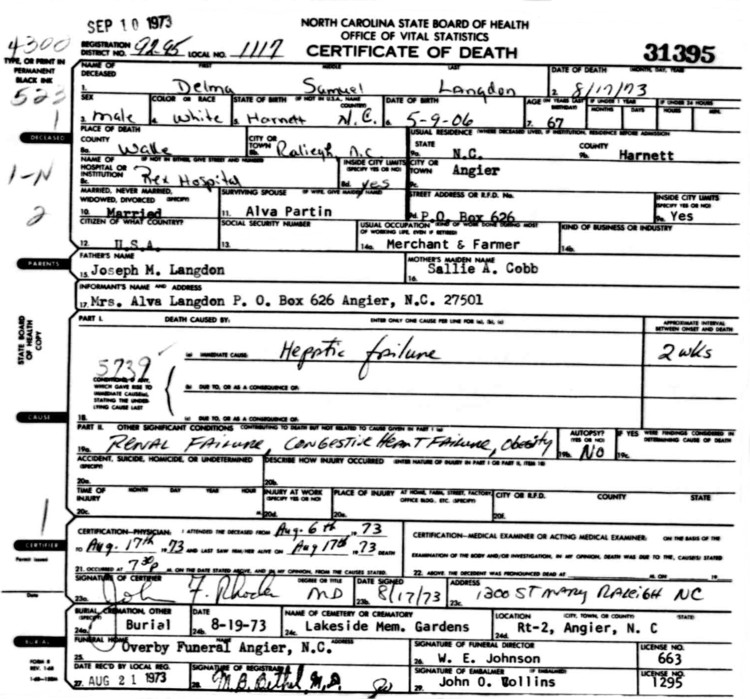 SEP 10 1973
NORTH CAROLINA STATE BOARD OF HEALTH
OFFICE OF VITAL STATISTICS
CERTIFICATE OF DEATH
31395
4300
REGISTRATION DISTRICT NO. 92-95 LOCAL NO. 1117
TYPE, OR PRINT IN PERMANENT BLACK INK
NAME OF DECEASED FIRST MIDDLE LAST DATE OF DEATH (MONTH, DAY, YEAR)
1. Delma Samuel Langdon 2. 8/17/73
523
SEX COLOR OR RACE STATE OF BIRTH (IF NOT IN U.S.A., NAME COUNTRY) DATE OF BIRTH AGE (IN YEARS LAST BIRTHDAY) IF UNDER 1 YEAR IF UNDER 24 HOURS
MONTHS DAYS HOURS MIN.
3. male 4. White 5. Harnett N.C. 6. 5-9-06 7. 67
1
DECEASED
PLACE OF DEATH USUAL RESIDENCE (WHERE DECEASED LIVED. IF INSTITUTION, RESIDENCE BEFORE ADMISSION)
COUNTY CITY OR TOWN STATE COUNTY
8a. Wake 8b. Raliegh, N.C 9a. N.C. 9b. Harnett
NAME OF HOSPITAL OR INSTITUTION (IF NOT IN EITHER, GIVE STREET AND NUMBER) INSIDE CITY LIMITS (SPECIFY YES OR NO) CITY OR TOWN
8c. Rex Hospital 8d. yes Angier
1-N
MARRIED, NEVER MARRIED, WIDOWED, DIVORCED (SPECIFY) SURVIVING SPOUSE (IF WIFE, GIVE MAIDEN NAME) STREET ADDRESS OR R.F.D. No. INSIDE CITY LIMITS (SPECIFY YES OR NO)
10. Married 11. Alva Partin 9d. P.O. Box 626 9e. Yes
2
CITIZEN OF WHAT COUNTRY? SOCIAL SECURITY NUMBER USUAL OCCUPATION (KIND OF WORK DONE DURING MOST OF WORKING LIFE, EVEN IF RETIRED) KIND OF BUSINESS OR INDUSTRY
12. U.S.A. 13. 14a. Merchant & Farmer 14b.
PARENTS
FATHER'S NAME MOTHER'S MAIDEN NAME
15. Joseph M. Langdon 16. Sallie A. Cobb
INFORMANT'S NAME AND ADDRESS
17. Mrs. Alva Langdon P. O. Box 626 Angier, N.C. 27501
STATE BOARD OF HEALTH COPY
PART I. DEATH CAUSED BY: ENTER ONLY ONE CAUSE PER LINE FOR (a), (b), (c) APPROXIMATE INTERVAL BETWEEN ONSET AND DEATH
(a) IMMEDIATE CAUSE Hepatic failure 2 wks
5739
CONDITIONS, IF ANY, WHICH GAVE RISE TO IMMEDIATE CAUSE(a), STATING THE UNDERLYING CAUSE LAST
(b) DUE TO, OR AS A CONSEQUENCE OF:
18. (c) DUE TO, OR AS A CONSEQUENCE OF:
CAUSE
PART II. OTHER SIGNIFICANT CONDITIONS CONTRIBUTING TO DEATH BUT NOT RELATED TO CAUSE GIVEN IN PART I (a) AUTOPSY? (YES OR NO) IF YES WERE FINDINGS CONSIDERED IN DETERMINING CAUSE OF DEATH
19a. RENAL FAILURE, CONGESTIVE HEART FAILURE, Obesity 19b. No 19c.
ACCIDENT, SUICIDE, HOMICIDE, OR UNDETERMINED (SPECIFY) DESCRIBE HOW INJURY OCCURRED (ENTER NATURE OF INJURY IN PART I OR PART II, ITEM 18)
20a. 20b.
TIME OF INJURY MONTH DAY YEAR HOUR INJURY AT WORK (SPECIFY YES OR NO) PLACE OF INJURY AT HOME, FARM, STREET, FACTORY, OFFICE BLDG., ETC. (SPECIFY) CITY OR R.F.D. COUNTY STATE
20c. 20d.
1
CERTIFIER
Permit issued
Date
CERTIFICATION—PHYSICIAN: I ATTENDED THE DECEASED FROM Aug. 6th, 19 73
TO Aug. 17th 19 73 AND LAST SAW HIM/HER ALIVE ON Aug 17th 19 73 DEATH
21. OCCURRED AT 730p M. ON THE DATE STATED ABOVE, AND IN MY OPINION, FROM THE CAUSES STATED.
CERTIFICATION—MEDICAL EXAMINER OR ACTING MEDICAL EXAMINER: ON THE BASIS OF THE
EXAMINATION OF THE BODY AND/OR INVESTIGATION, IN MY OPINION, DEATH WAS DUE TO THE, CAUSE(S) STATED
22. ABOVE. THE DECEDENT WAS PRONOUNCED DEAD AT M. ON 19
SIGNATURE OF CERTIFIER DEGREE OR TITLE DATE SIGNED ADDRESS
23a. John F. Rhodes MD 23b. 8/17/73 23c. 1300 ST MARY RALEIGH NC
BURIAL, CREMATION, OTHER (SPECIFY) DATE NAME OF CEMETERY OR CREMATORY LOCATION (CITY, TOWN, OR COUNTY) (STATE)
24a. Burial 8-19-73 Lakeside Mem. Gardens 24d. Rt-2, Angier, N. C
BURIAL
FUNERAL HOME ADDRESS SIGNATURE OF FUNERAL DIRECTOR LICENSE NO.
25. Overby Funeral Angier, N.C. 26. W. E. Johnson 663
DATE REC'D BY LOCAL REG. SIGNATURE OF REGISTRAR SIGNATURE OF EMBALMER (IF EMBALMED) LICENSE NO.
27. AUG 21 1973 28. M.B. Bethel M.D. 29. John O. Collins 1295